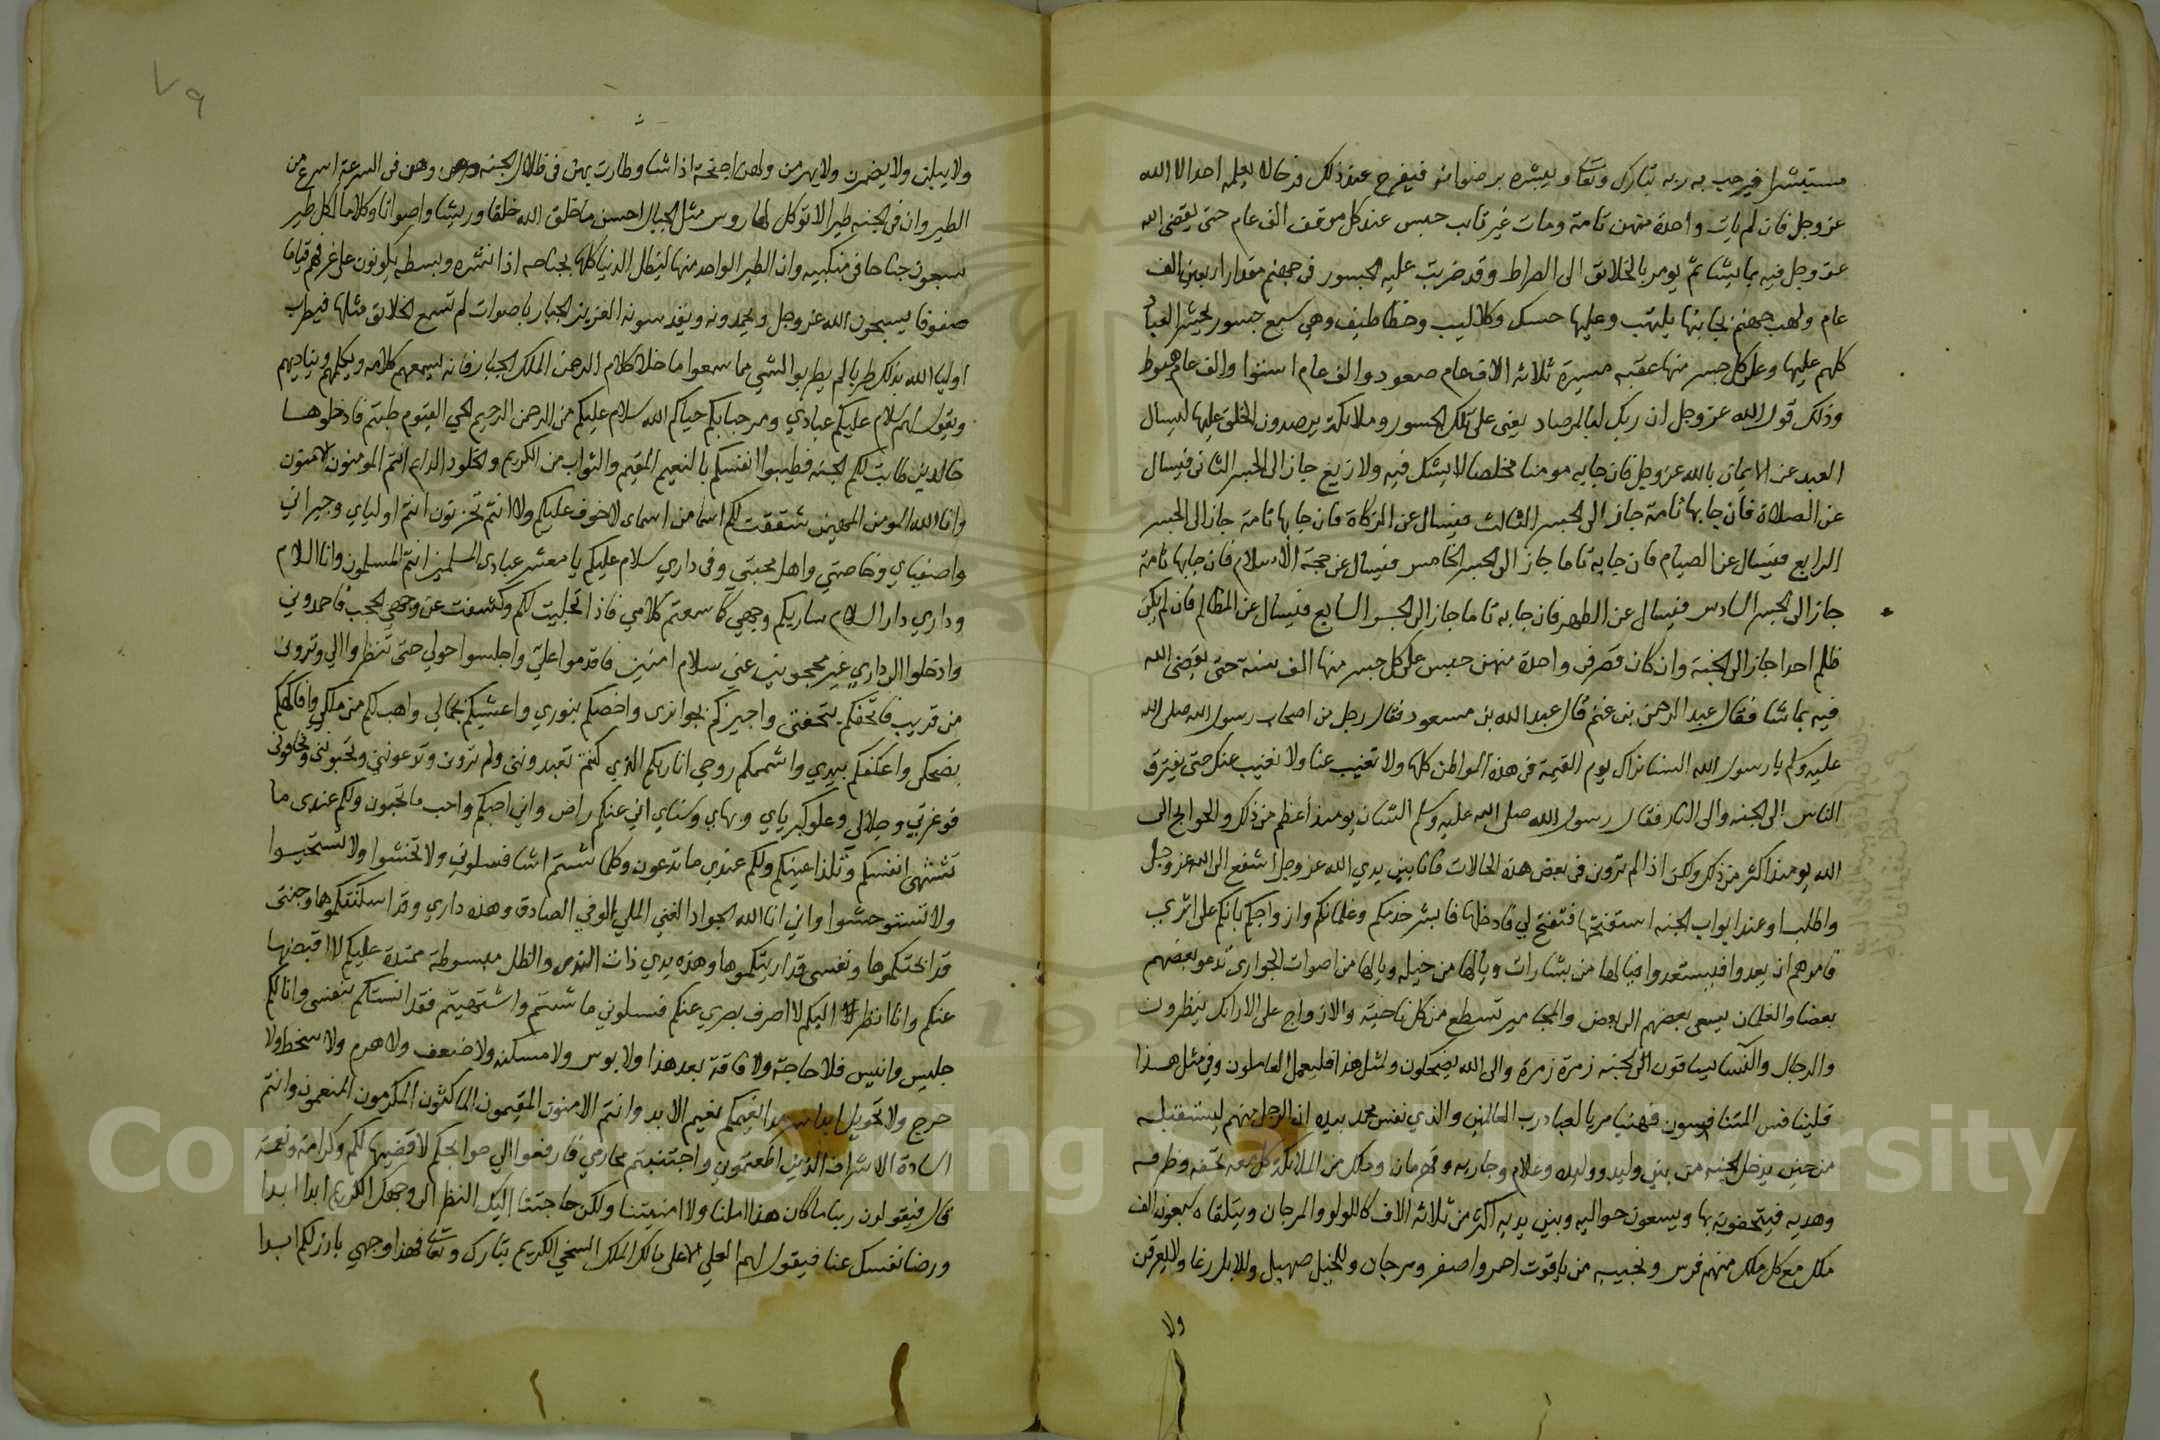 مستبشرا فيرحب به ربه تبارك وتعالى ويبشره برضوانه فيفرح عند ذلك فرحا لا يعلمه احد الا الله
عز وجل فان لم يات واحدة منهن تامة ومات غير تايب حبس عند كل موقف الف عام حتى يقضى الله
عز وجل فيه بما يشا ثم يومر بالخلايق الى الصراط وقد ضربت عليه الجسور فى جهنم مقدار اربعين الف
عام ولهب جهنم بجانبها يلتهب وعليها حسك وكلاليب وخطاطيف وهي سبع جسور يحشر العباد
كلهم عليها وعلى كل جسر منها عقبه مسيرة ثلاثه الاف عام صعود والف عام استوا والف عام هبوط
وذلك قول الله عز وجل ان ربك لبالمرصاد يعنى على تلك الجسور وملايكته يرصدون الخلق عليها ليسال
العبد عن الايمان بالله عز وجل فان جا به مومنا مخلصا لا يشك فيه ولا زيغ جاز الى الجسر الثانى فيسال
عن الصلاة فان جا بها تامة جاز الى الجسر الثالث فيسال عن الزكاة فان جا بها تامة جاز الى الجسر
الرابع فيسال عن الصيام فان جا به تاما جاز الى الجسر الخامس فيسال عن حجة الاسلام فان جا بها تامة
جاز الى الجسر السادس فيسال عن الطهر فان جا به تاما جاز الى الجسر السابع فيسال عن المظالم فان لم يكن
ظلم احدا جاز الى الجنة وان كان قصر فى واحدة منهن حبس على كل جسر منها الف سنة حتى يقضى الله
فيه بما شا فقال عبد الرحمن بن غنم قال عبد الله بن مسعود فقال رجل من اصحاب رسول الله صلى الله
عليه وسلم يا رسول الله السنا نراك يوم القيمة فى هذه المواطن كلها ولا تغيب عنا ولا نغيب عنك حتى يفترق
الناس الى الجنه والى النار فقال رسول الله صلى الله عليه وسلم الشان يوميذ اعظم من ذلك والحوايج الى
الله يوميذ اكثر من ذلك ولكن اذا لم تروني فى بعض هذه الحالات فانا بين يدي الله عز وجل اشفع الى الله عز وجل
واطلب او عند ابواب الجنه استفتحها فتفتح لي فادخلها فابشر خدمكم وغلمانكم وازواجكم بانكم على اثري
فامرهم ان يعدوا فيستعدوا فيا لها من بشارات ويا لها من خيله ويا لها من اصوات الجوارى تدعو بعضهم
بعضا والغلمان يسعى بعضهم الى بعض والمجامير تسطع من كل ناحية والازواج على الارايك ينظرون
والرجال والنسا يساقون الى الجنه زمرة زمرة والى الله يضحكون ولمثل هذا فليعمل العاملون وفي مثل هذا
فليتنافس المتنافسون فهنيا مريا لعباد رب العالمين والذي نفس محمد بيده ان الرجل منهم ليستقبله
من حين يدخل الجنه من بني وليد ووليده وغلام وجاريه وقهرمان وملك من الملايكة كل معه تحفه وظرفه
وهديه فيتحفونه بها ويسعون حواليه وبين يديه اكثر من ثلاثه الاف كاللولو والمرجان ويتلقاه سبعون الف
ملك مع كل ملك منهم فرس ونجيبه من ياقوت احمر واصفر ومرجان وللخيل صهيل وللابل رغا ولا يعرقن
ولا
٧٩
ولا يبلن ولا يضمرن ولا يهرمن ولهن اجنحة اذا شا وطارت بهن فى ظلال الجنه وهن فى السرعة اسرع من
الطير وان فى الجنه طيرا لا توكل لها روس مثل الجبال احسن ما خلق الله خلقا وريشا واصواتا وكلاما لكل طير
سبعون جناحا فى منكبيه وان الطير الواحد منها ليظل الدنيا كلها بجناحه اذا نشره وبسطه يكونون على غرفهم قياما
صفوفا يسبحون الله عز وجل ويحمدونه ويقدسونه العزيز الجبار باصوات لم تسمع الخلايق مثلها فيطرب
اوليا الله بذلك طربا لم يطربوا لشي مما سمعوا ما خلا كلام الرحمن الملك الجبار فانه يسمعهم كلامه ويكلمهم ويناديهم
ويقول لهم سلام عليكم عبادي ومرحبا بكم حياكم الله سلام عليكم من الرحمن الرحيم الحي القيوم طبتم فادخلوها
خالدين طابت لكم الجنه فطيبوا انفسكم بالنعيم المقيم والثواب من الكريم والخلود الدايم انتم المومنون الامنون
وانا الله المومن المهيمن شققت لكم اسما من اسماى لا خوف عليكم ولا انتم تحزنون انتم اولياي وجيراني
واصفياي وخاصتي واهل محبتي وفى داري سلام عليكم يا معشر عبادى المسلمين انتم المسلمون وانا السلام
وداري دار السلام ساريكم وجهي كما سمعتم كلامي فاذا تجليت لكم وكشفت عن وجهي الحجب فاحمدوني
وادخلوا الى داري غير محجوبين عني سلام امنين فاقدموا علي واجلسوا حولي حتى تنظروا الي وتروني
من قريب فاتحفكم بتحفتى واجيزكم بجوايزى واخصكم بنوري واغشيكم بجمالي واهب لكم من ملكي وافاكهكم
بضحكى واعكفكم بيدي واشممكم روحي انا ربكم الذي كنتم تعبدونني ولم تروني وتدعونني وتحبونني وتخافوني
فوعزتي وجلالي وعلوي كبرياي وبهاي وسناي اني عنكم راض واني احبكم واحب ما تحبون ولكم عندى ما
تشتهى انفسكم وتلذ اعينكم ولكم عندي ما تدعون وكلما شيتم اشا فسلوني ولا تحتشموا ولا تستحيوا
ولا تستوحشوا واني انا الله الجواد الغني الملي الوفي الصادق وهذه داري وقد اسكنتكموها وجنتى
قد ابحتكموها ونفسى قد اريتكموها وهذه يدي ذات الندى والظل مبسوطة ممتدة عليكم لا اقبضها
عنكم وانا انظر اليكم لا اصرف بصري عنكم فسلوني ما شيتم واشتهيتم فقد انستكم بنفسى وانا لكم
جليس وانيس فلا حاجة ولا فاقة بعد هذا ولا بوس ولا مسكنه ولا ضعف ولا هرم ولا سخط ولا
حرج ولا تحويل ابدا سرمدا نعيمكم نعيم الابد وانتم الامنون المقيمون الماكثون المكرمون المنعمون وانتم
السادة الاشراف الذين اطعتموني واجتنبتم محارمي فارفعوا الي حوايجكم لاقضيها لكم وكرامة ونعمة
قال فيقولون ربنا ما كان هذا املنا ولا امنيتنا ولكن حاجتنا اليك النظر الى وجهك الكريم ابدا ابدا
ورضا نفسك عنا فيقول لهم العلي الاعلى مالك الملك السخي الكريم تبارك وتعالى فهذا وجهي بارز لكم ابدا